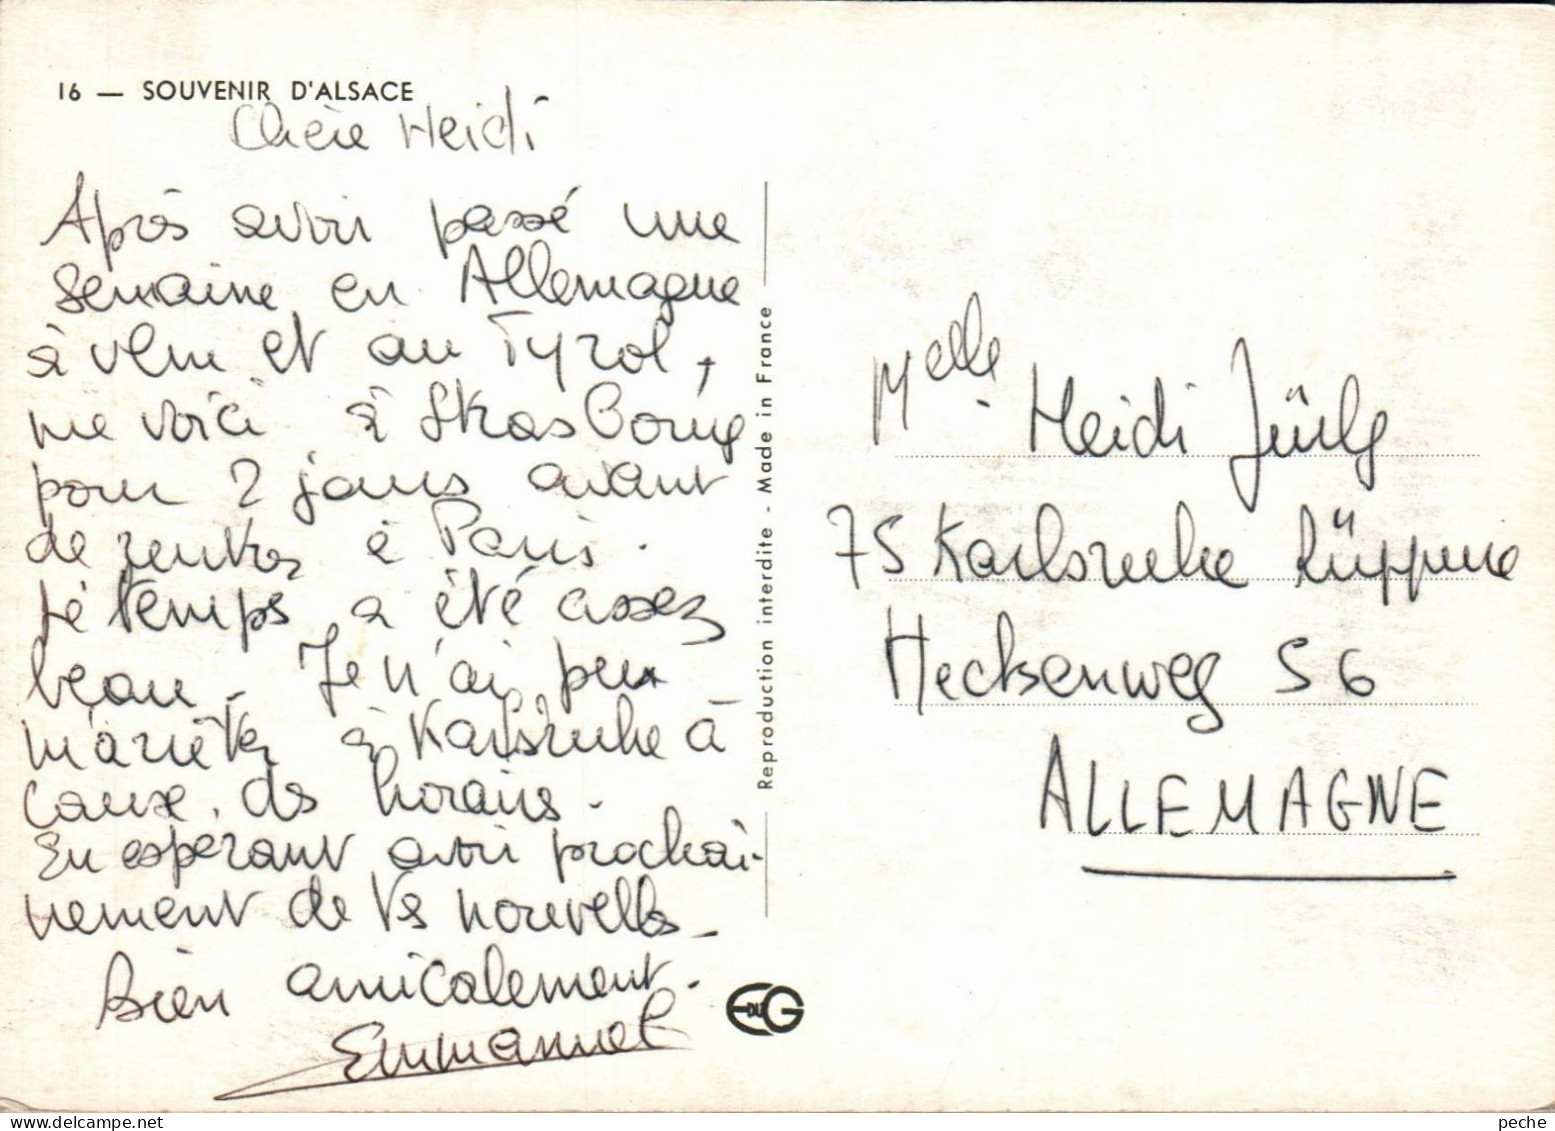 16 — SOUVENIR D'ALSACE
Chère Heidi
Après avoir passé une
semaine en Allemagne
à Ulm et au Tyrol,
me voici à Strasbourg
pour 2 jours avant
de rentrer à Paris.
Le temps a été assez
beau. Je n'ai pu
m'arrêter à Karlsruhe à
cause des horaires.
En espérant avoir prochai-
nement de tes nouvelles.
Bien amicalement.
Emmanuel
Reproduction interdite - Made in France
EDUG
Melle Heidi
75 Karlsruhe Rüppurr
Heckenweg 56
ALLEMAGNE
peche